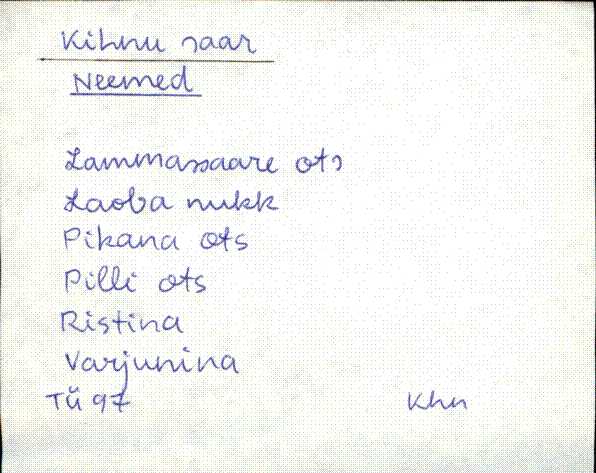 Kihnu saar
Neemed
Lammassaare ots
Laoba nukk
Pikana ots
Pilli ots
Ristina
Varjunina
TÜ 97 Khn